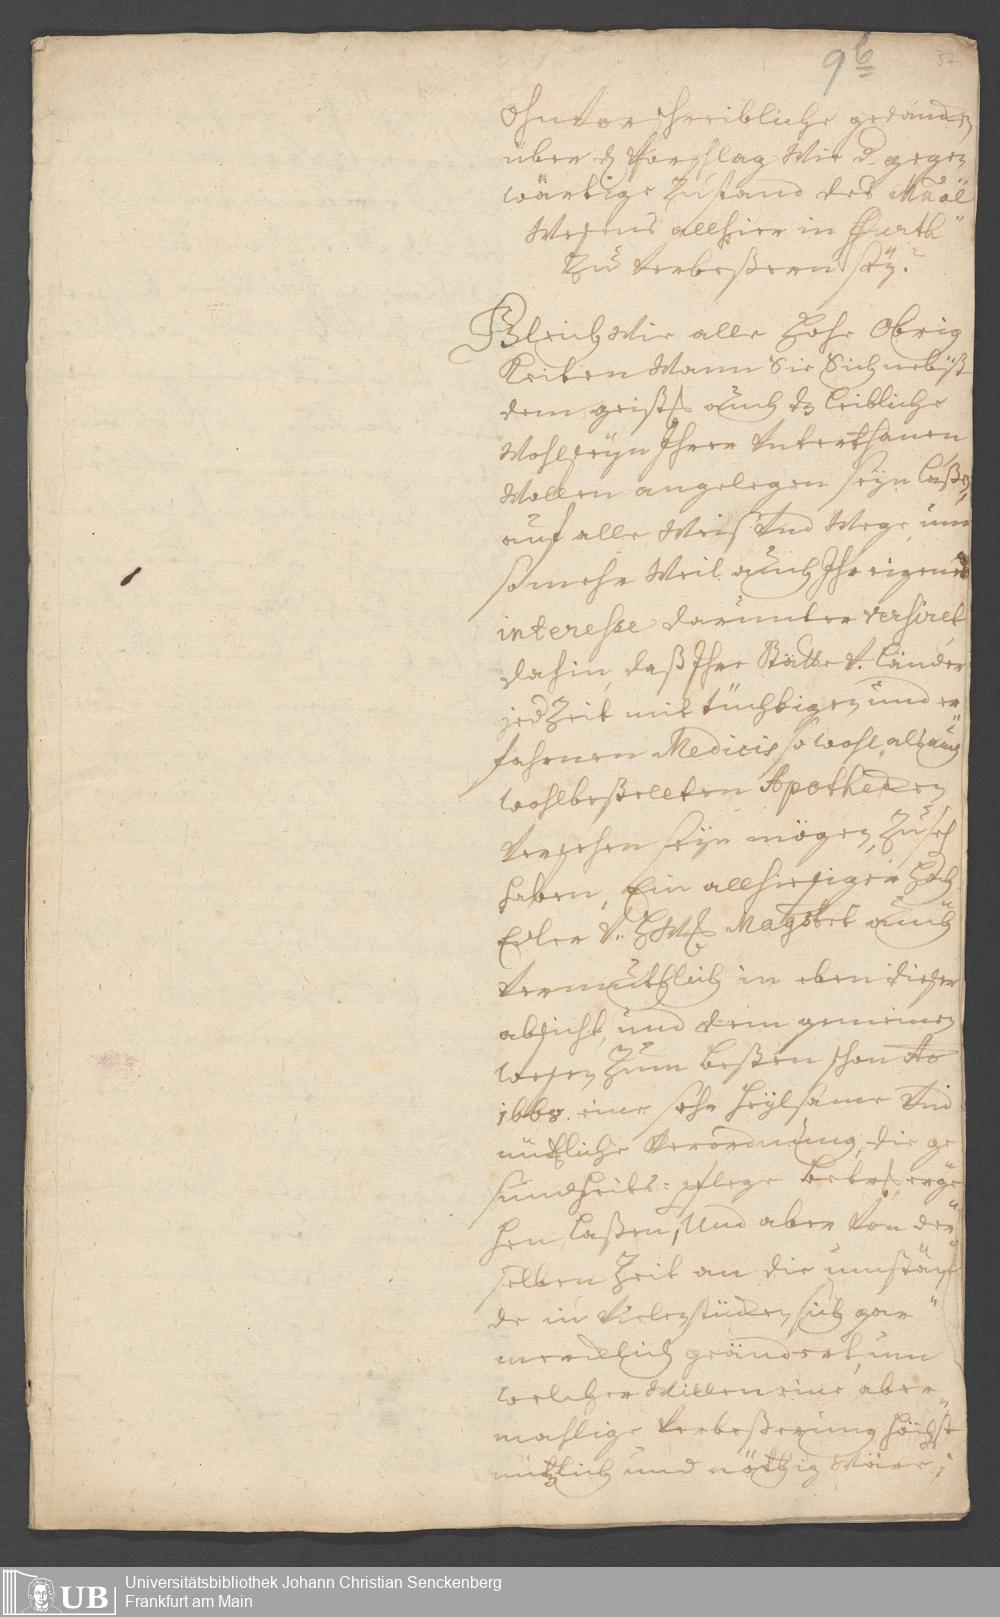 9b
32
Ohnvorschreibliche gedancken
über d Vorschlag Wie d. gegen
wärtige Zustand des
Wesens allhier in Furth
Zu verbeßern sey.
Gleich Wie alle Hohe Obrig
Keiten Wann Sie Sich nebst
dem geistl. auch dz leibliche
Wohlseyn Ihrer Unterthanen
Wollen angelegen seyn laßen,
auf alle Weis Und Wege um
so mehr Weil auch Ihr eigenes
interesse darunter versiret
dahin, daß Ihre Stätte V. Länder
jedZeit mit tüchtigen und er
fahrnen Medicis sowohl als auch
wohlbestellten Apothecken
Versehen seyn mögen, Zu seh
haben, Ein allhiesiger Hoch
Edler V. HW. Magstrt auch
Vermuthlich in eben dieser
absicht, und dem gemeinen
wesen Zum besten schon Ao
1668. eine sehr heylsame Und
nützliche Verordnung, die ge
sundheits-pflege betr. erge
hen laßen, Und aber Von der
selben Zeit an die umstän
de in Vielen stücken sich gar
mercklich geändert, um
welcher Willen eine aber
mahlige Verbeßerung höchst
nützlich und nöthig Wäre;
UB
Universitätsbibliothek Johann Christian Senckenberg
Frankfurt am Main